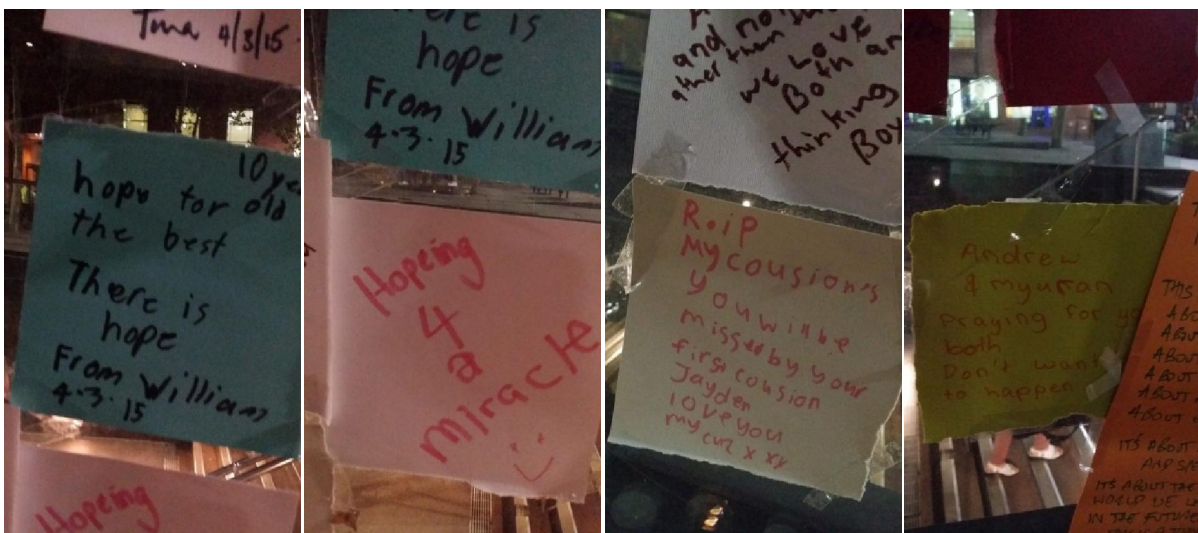 Tina 4/3/15
10 ye
hope for old
the best
There is
hope
From William
4.3.15
Hopeing
There is
hope
From William
4.3.15
Hopeing
4
a
miracle
and no
other then
we Love
Both an
thinking
Boy
R.iP
My cousion's
you will be
missed by your
first cousion
Jayden
love you
my cuz x xx
Andrew
& myuran
praying for yo
both
Don't want
to happen
THIS
ABO
ABOUT
ABOUT
ABOUT
ABOUT
ABOUT
IT'S ABOUT
AND
IT'S ABOUT THE
WORLD WE
IN THE FUTURE